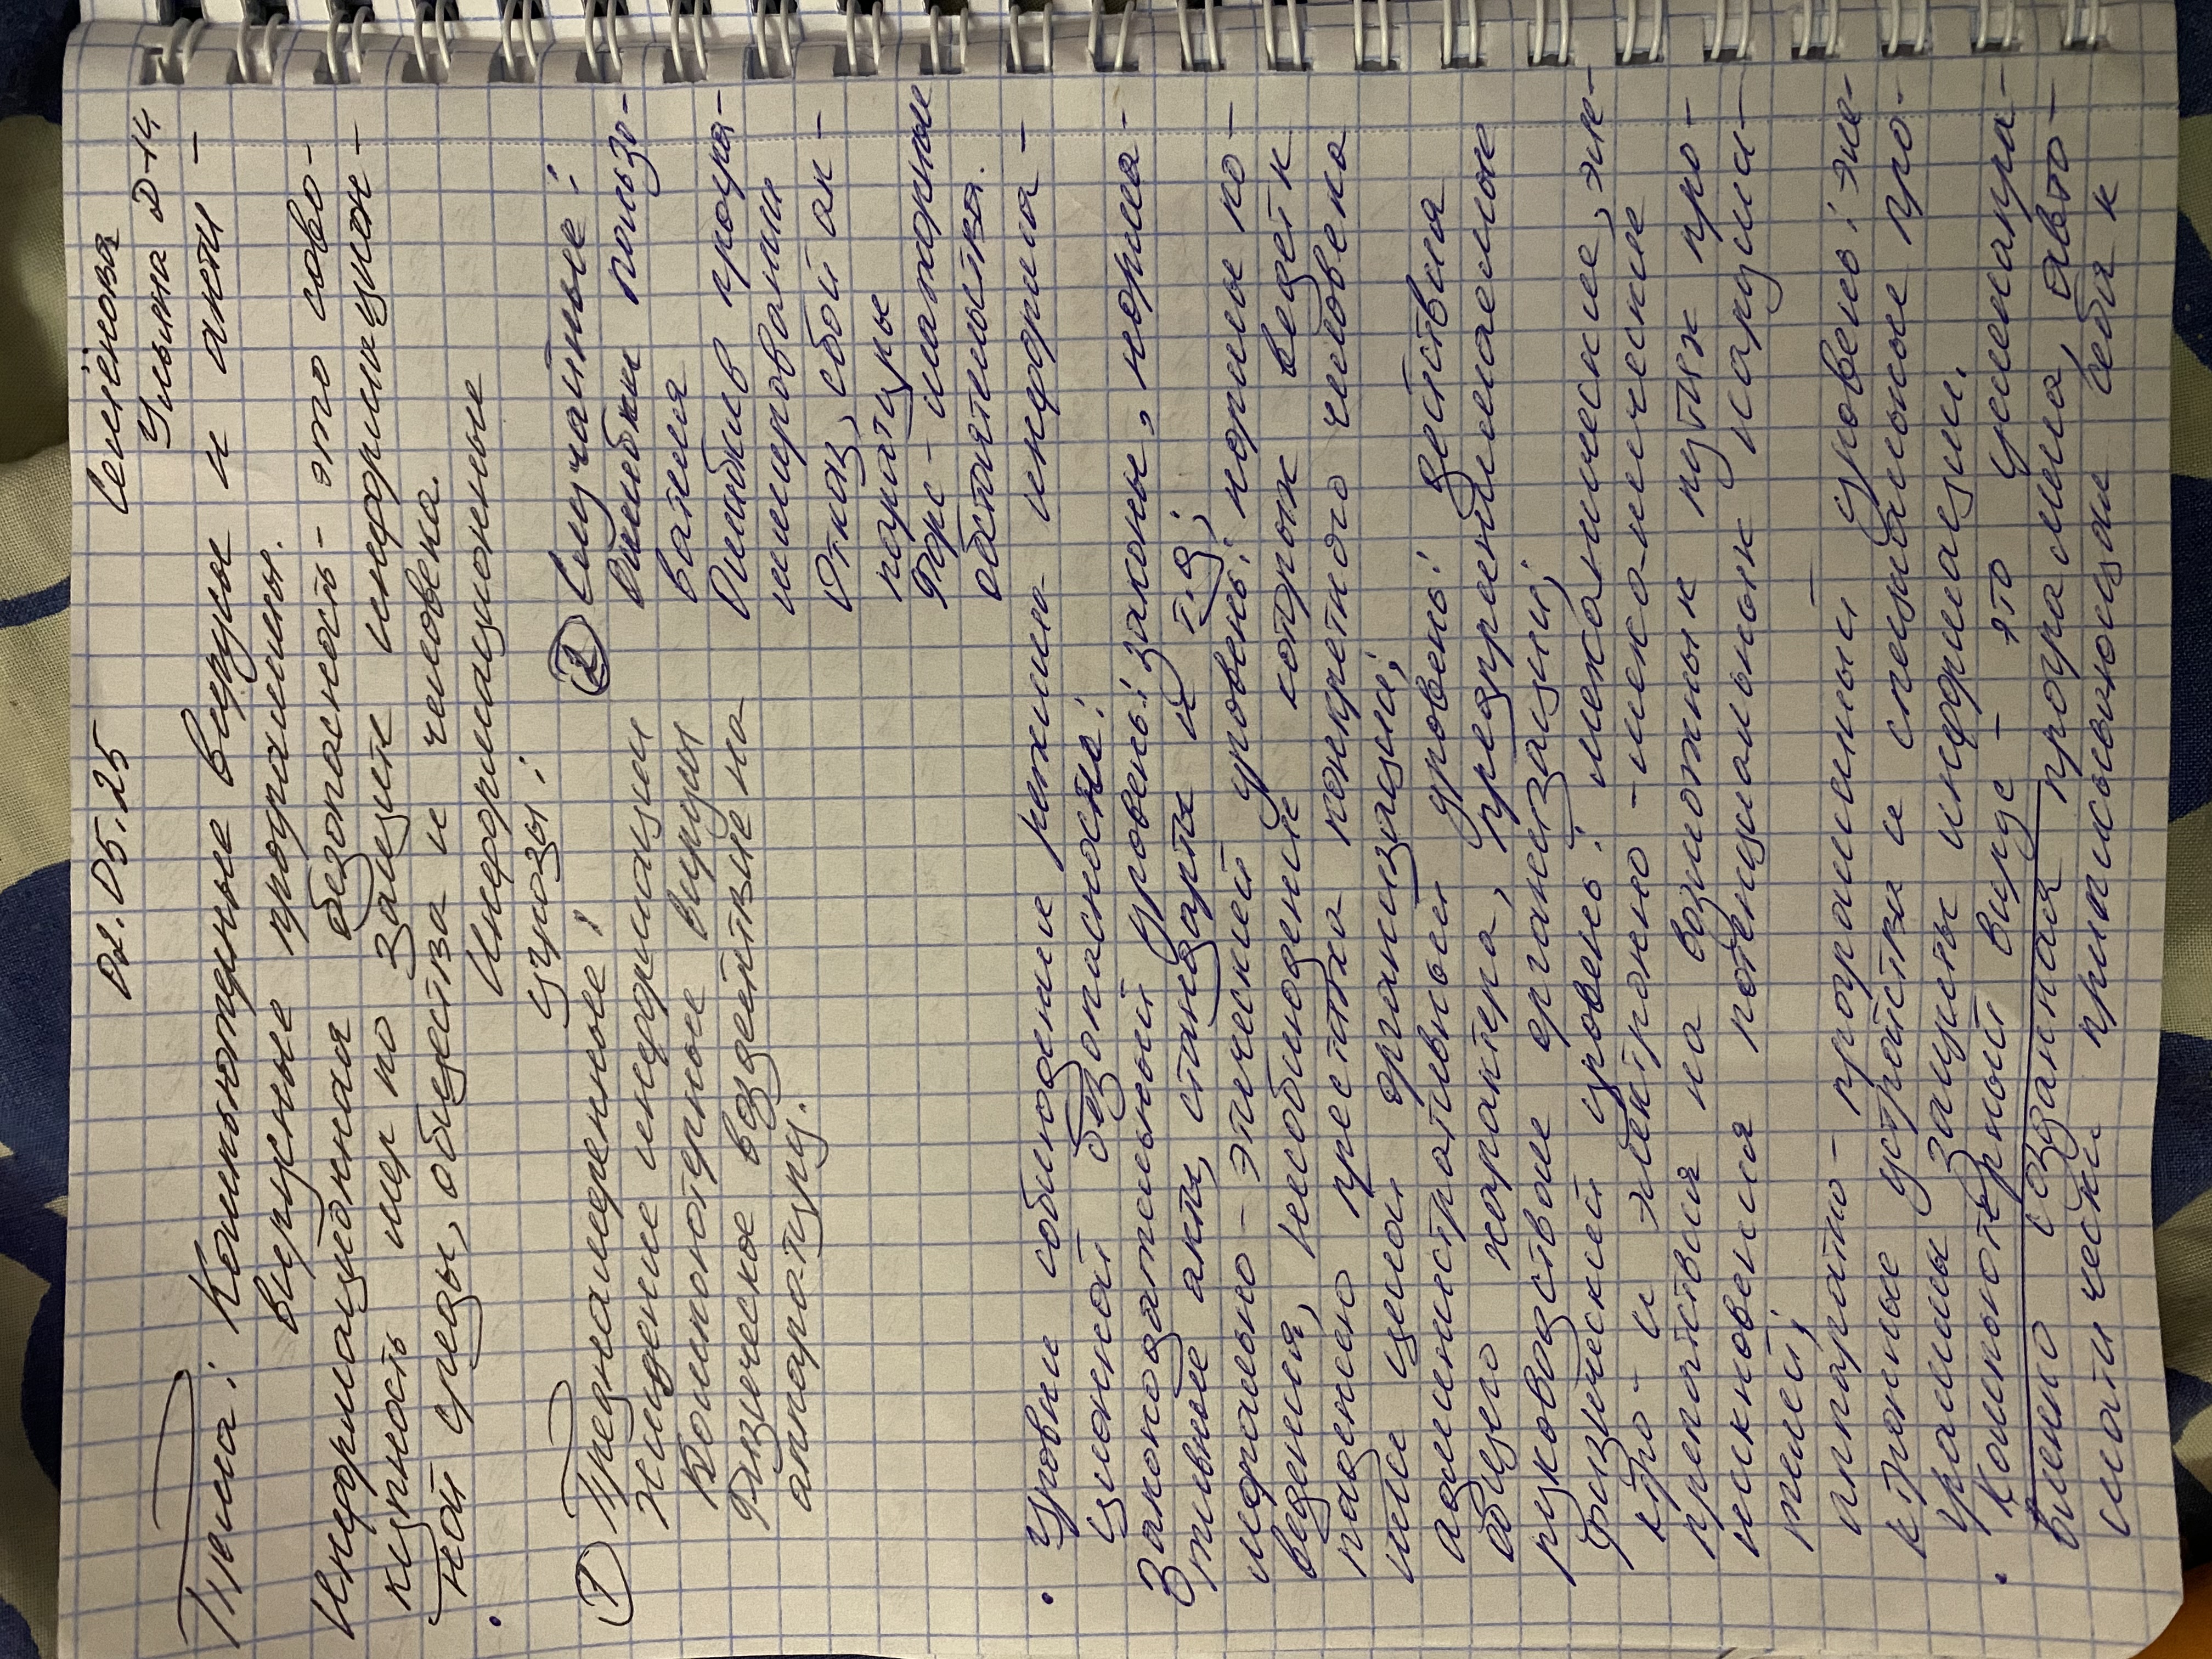 02.05.25 Семёнова
Ульяна D-14
Тема: Компьютерные вирусы и анти-
вирусные программы.
Информационная безопасность - это сово-
купность мер по защите информацион-
ной среды, общества и человека.
• Информационные
угрозы:
① Преднамеренное:
хищение информации
Компьютерные вирусы
Физическое воздействие на
аппаратуру.
② Случайные:
Ошибки пользо-
вателя
Ошибки в програ-
ммировании
Отказ, сбой ап-
паратуры
Форс-мажорные
обстоятельства.
• уровни соблюдения режима информа-
ционной безопасности:
Законодательный уровень: законы, норма-
тивные акты, стандарты и т.д;
морально-этический уровень: нормы по-
ведения, несоблюдение которых ведет к
падению престижа конкретного человека
или целой организации;
административный уровень: действия
общего характера, предпринимаемые
руководством организации;
физический уровень: механические, эле-
ктро- и электронно-механические
препятствия на возможных путях про-
никновения потенциальных наруши-
телей;
аппаратно-программный уровень: эле-
ктронные устройства и специальные про-
граммы защиты информации.
• Компьютерный вирус - это специаль-
но созданная программа, авто-
матически приписывающая себя к